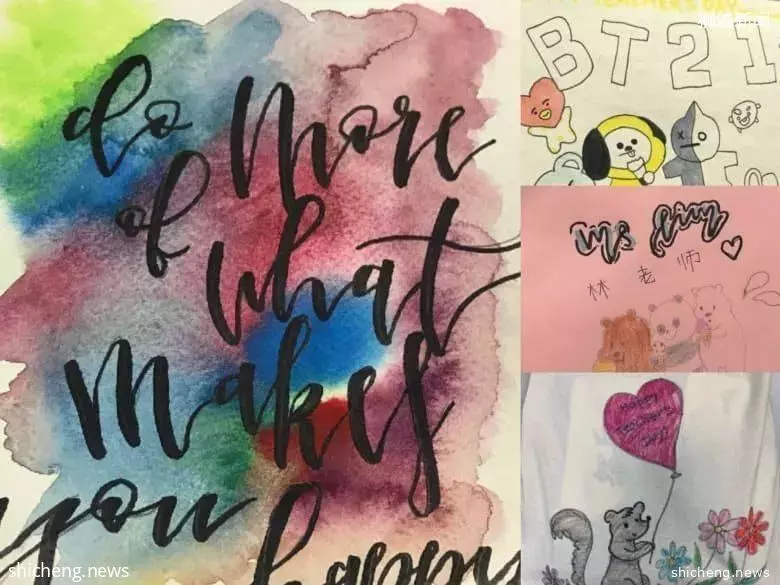 do more
of what
makes
you happy
TEACHER'S DAY
BT21
Ms Lim
林老师
Happy
Teacher's
Day!
shicheng.news
shicheng.news